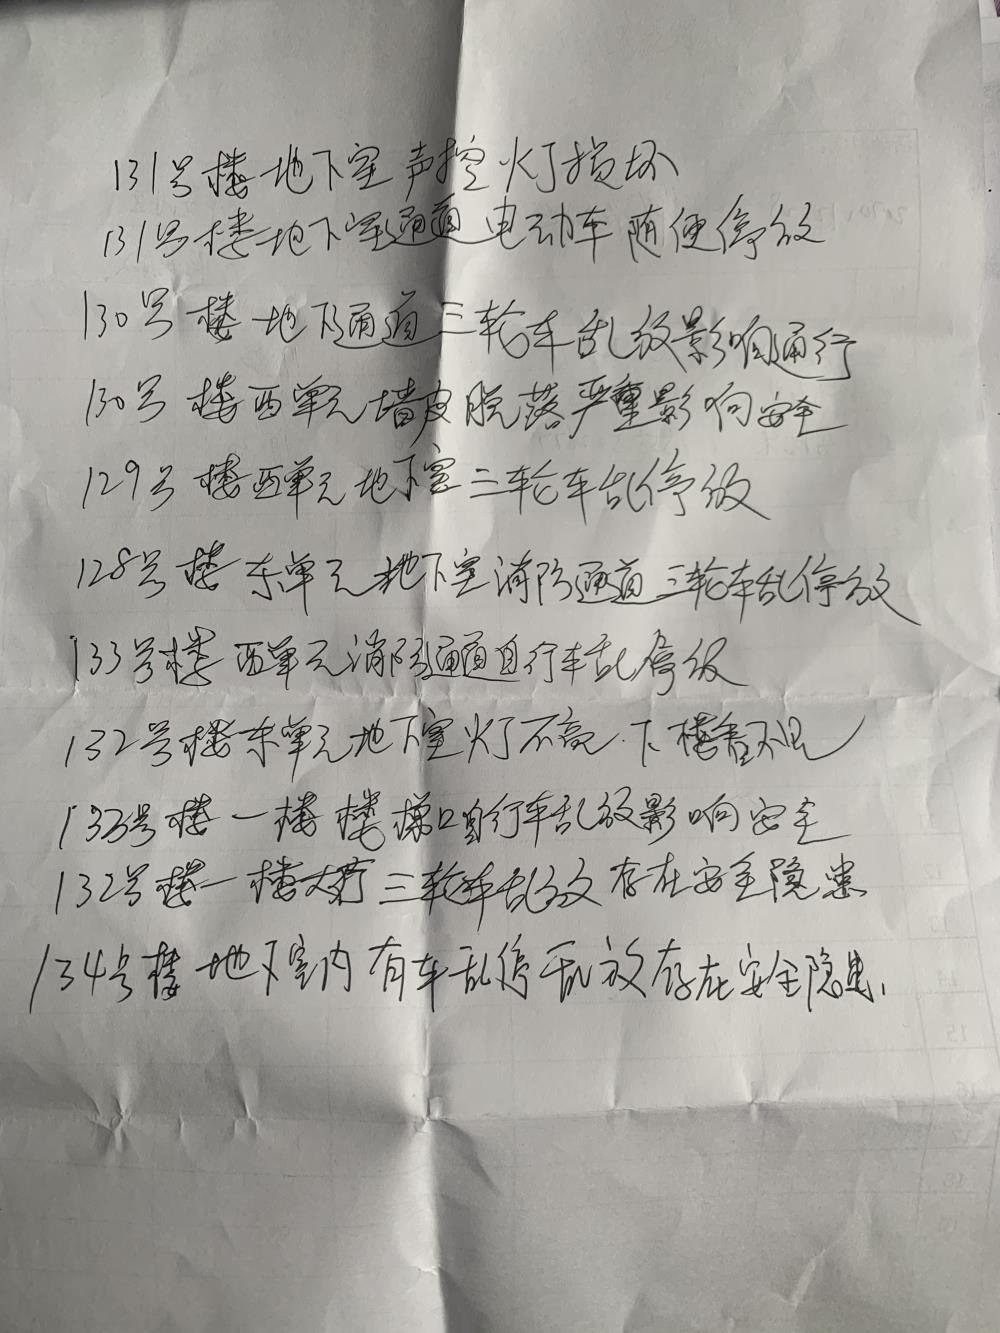 131号楼地下室声控灯损坏
131号楼地下室通道电动车随便停放
130号楼地下通道三轮车乱放影响通行
130号楼西单元墙皮脱落严重影响安全
129号楼西单元地下室三轮车乱停放
128号楼东单元地下室消防通道三轮车乱停放
133号楼西单元消防通道自行车乱停放
132号楼东单元地下室灯不亮.下楼看不见
133号楼一楼楼梯口自行车乱放影响安全
132号楼一楼大厅三轮车乱放存在安全隐患
134号楼地下室内有车乱停乱放存在安全隐患.